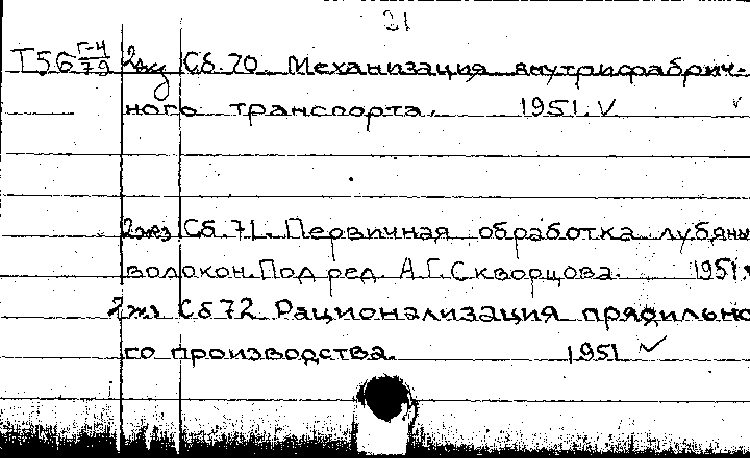 21
Т56 Г-4/79 2экз Сб.70. Механизация внутрифабрич-
ного транспорта. 1951. V
2экз Сб.71. Первичная обработка лубяны
волокон. Под ред. А.Г.Скворцова. 1951.
2экз Сб 72 Рационализация прядильно
го производства. 1951